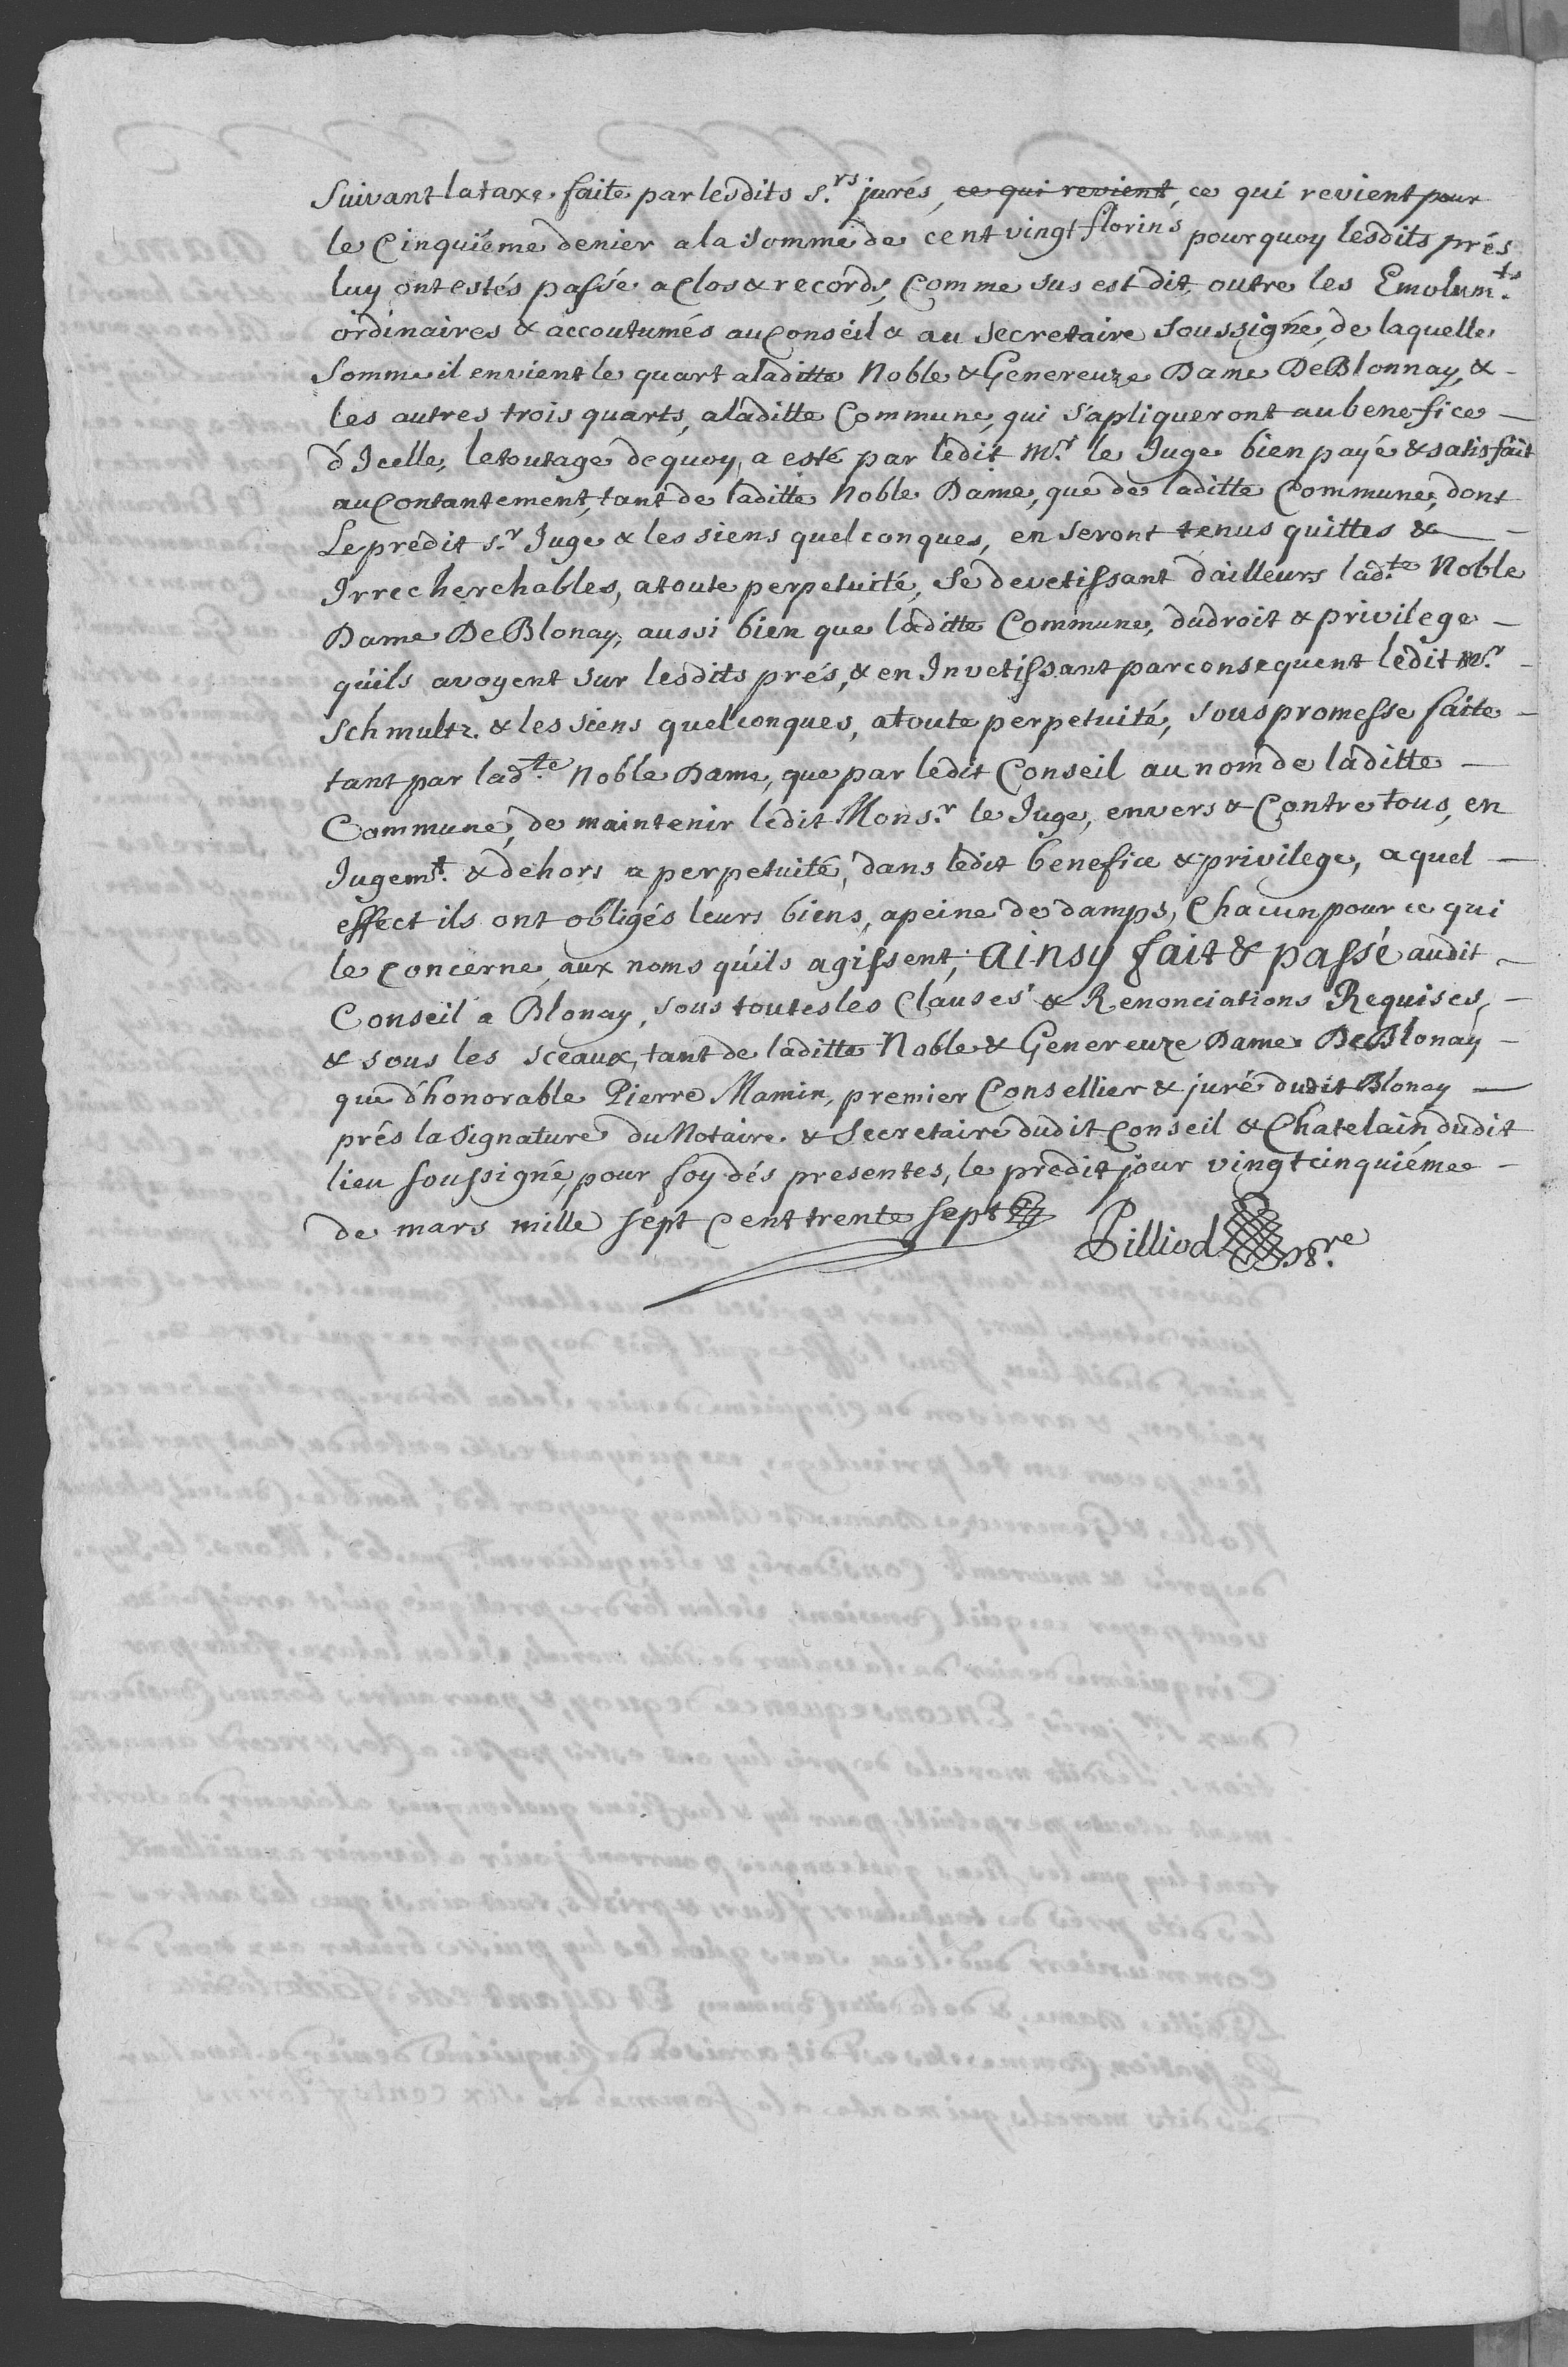 Suivant la taxe faite par lesdits s.rs jurés, ~~ce qui revient~~, ce qui revient pour
le Cinquiéme denier a la somme de cent vingt florins pourquoy lesdits prés
luy ont estés passé a Clos & records, Comme sus est dit, outre les Emolum.ts
ordinaires & accoutumés au Conseil & au secretaire soussigné, de laquelle
Somme il en vient le quart a laditte Noble & Genereuze Dame De Blonnay, & -
les autres trois quarts, a laditte Commune, qui s'apliqueront au benefice -
d'Icelle, le toutage dequoy a esté par ledit Mr. le Juge bien payé & satisfait
au Contantement, tant de laditte Noble Dame, que de laditte Commune, dont
Le prédit s.r Juge & les siens quelconques, en seront tenus quittes & -
Irrecherchables, a toute perpetuité, se devetissant d'ailleurs lad.te Noble
Dame De Blonay, aussi bien que laditte Commune, du droit & privilege -
qu'ils avoyent sur lesdits prés, & en Invetissant par consequent ledit Mr. -
Schmultz. & les siens quelconques, a toute perpetuité, sous promesse faite -
tant par lad.te Noble Dame, que par ledit Conseil au nom de laditte -
Commune, de maintenir ledit Mons.r le Juge, envers & Contre tous, en
Jugem.t & dehors a perpetuité, dans ledit benefice & privilege, a quel -
effect ils ont obligés leurs biens, a peine de damps, Chacun pour ce qui
le Concerne, aux noms qu'ils agissent, Ainsy fait & passé audit -
Conseil a Blonay, sous toutes les Clauses & Renonciations Requises, -
& sous les sceaux, tant de laditte Noble & Genereuze Dame De Blonay -
que d'honorable Pierre Mamin, premier Consellier & juré dudit Blonay -
prés la signature du Notaire & Secretaire dudit Conseil & Chatelain dudit
lieu soussigné, pour foy dés presentes, le prédit jour vingt cinquiéme -
de mars mille sept Cent trente sept
Pilliod